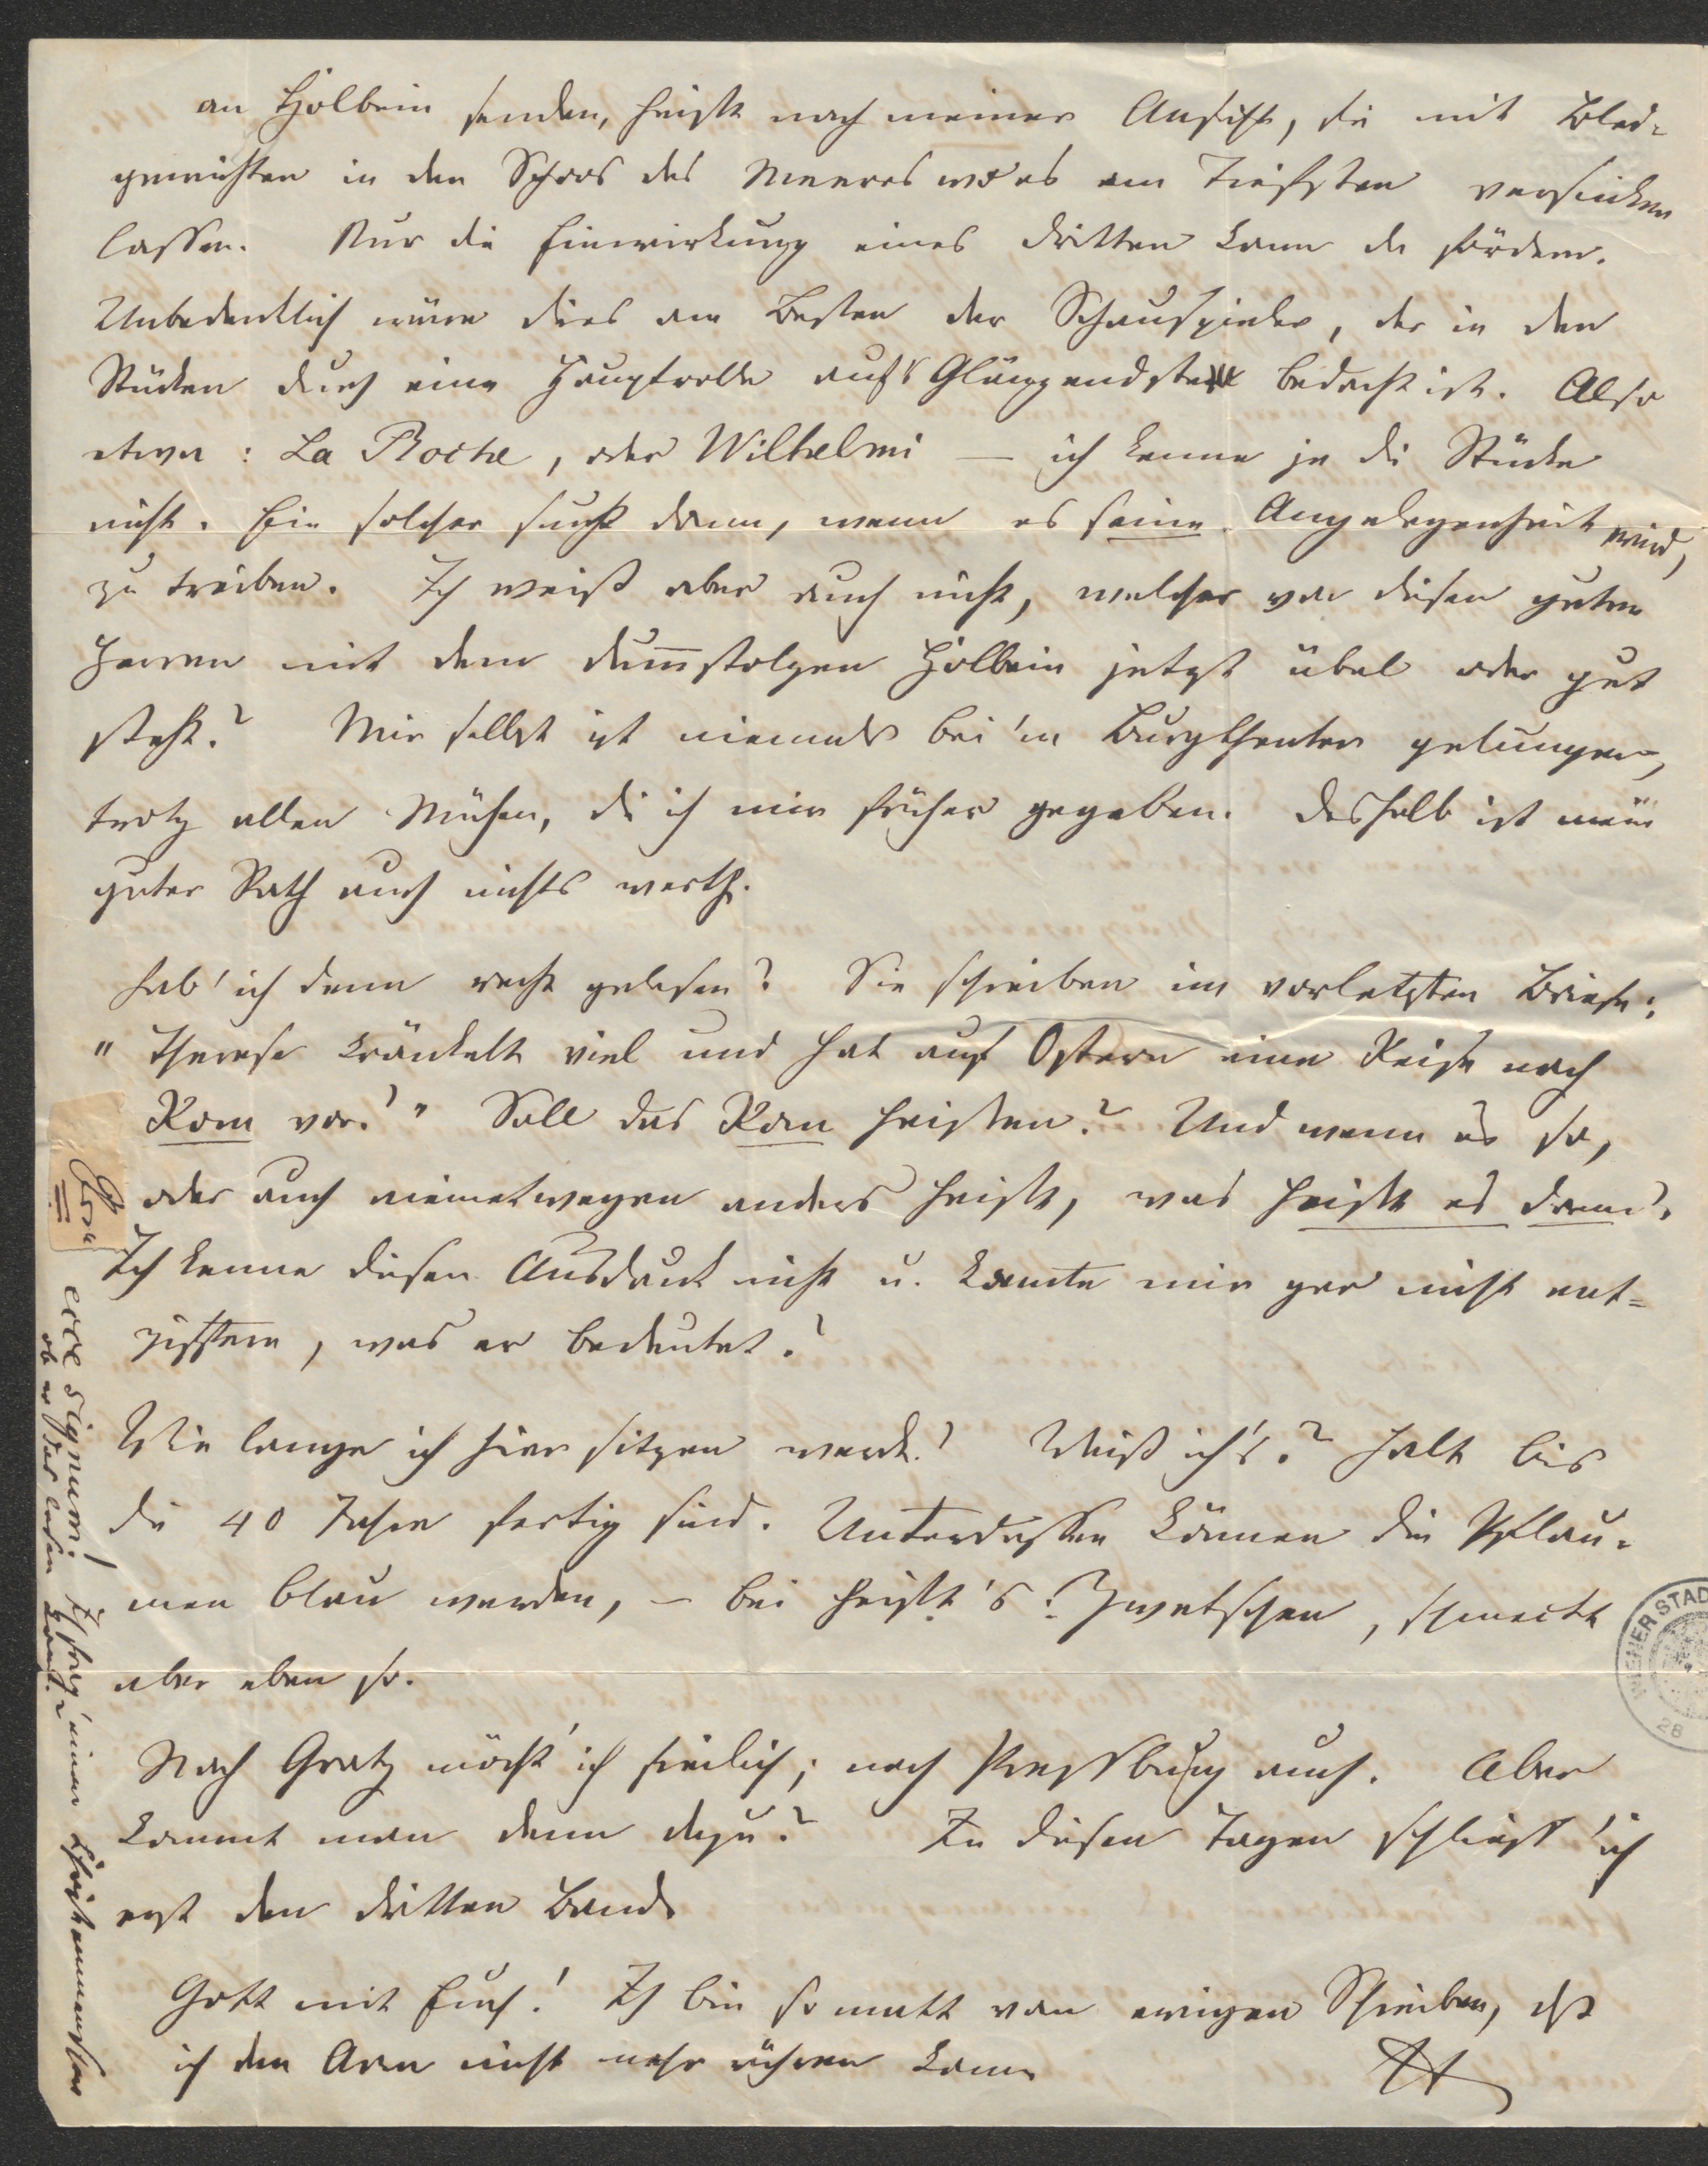 an Holbein senden, heißt nach meiner Ansicht, sie mit Blei-
gewichten in den Schoos des Meeres wo es am Tiefsten versinken
lassen. Nur die Einwirkung eines Dritten kann da fördern.
Unbedenklich wäre dies am Besten der Schauspieler, der in den
Stücken durch eine Hauptrolle auf's Glänzendste bedacht ist. Also
etwa: La Roche, oder Wilhelmi — ich kenne ja die Stücke
nicht. Ein solcher sucht dann, wenn es seine Angelegenheit wird,
zu treiben. Ich weiß aber auch nicht, welcher von diesen guten
Herren mit dem dummstolzen Holbein jetzt übel oder gut
steht? Mir selbst ist niemals bei'm Burgtheater gelungen,
trotz allen Mühen, die ich mir früher gegeben. Deshalb ist mein
guter Rath auch nichts werth.
Hab' ich denn recht gelesen? Sie schreiben im vorletzten Briefe:
"Therese kränkelt viel und hat auf Ostern eine Reise nach
Rom vor!" Soll das Rom heißen? Und wenn es so,
oder auch meinetwegen anders heißt, was heißt es denn?
Ich kenne diesen Ausdruck nicht u. konnte mir gar nicht ent=
ziffern, was er bedeutet?
Wie lange ich hier sitzen werde? Weiß ich's? Halt bis
die 40 Jahre fertig sind. Unterdessen können die Pflau-
men blau werden, — bei heißt's: Zwetschen, schmeckt
aber eben so.
Nach Gratz möcht' ich freilich; nach Pressburg auch. Aber
kommt man denn dazu? In diesen Tagen schließ' ich
erst den dritten Band.
Gott mit Euch! Ich bin so matt vom ewigen Schreiben, daß
ich den Arm nicht mehr rühren kann
H
Rom
ecce signum! Ich frag' einen Christenmenschen
ob er das lesen kann?
WIENER STAD
28